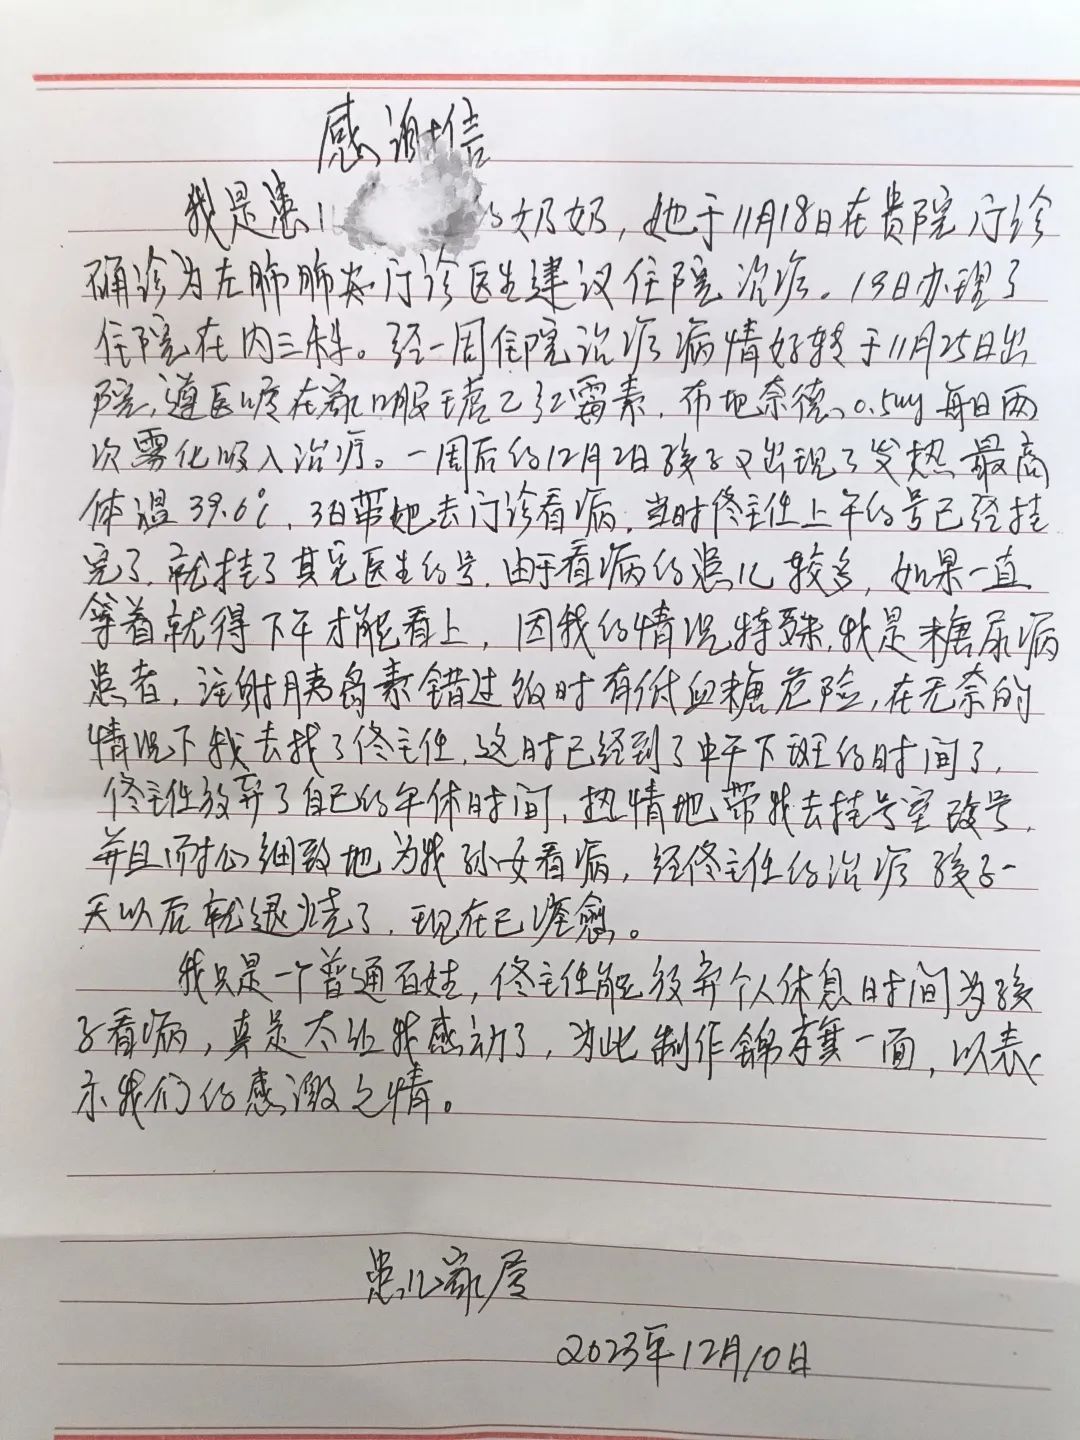 感谢信
我是患儿 的奶奶，她于11月18日在贵院门诊
确诊为左肺肺炎门诊医生建议住院治疗。19日办理了
住院在内三科。经一周住院治疗病情好转于11月25日出
院，遵医嘱在家口服 乙红霉素，布地奈德、0.5mg每日两
次雾化吸入治疗。一周后的12月2日孩子又出现了发热最高
体温39.6℃，3日带她去门诊看病，当时佟主任上午的号已经挂
完了，就挂了其它医生的号，由于看病的患儿较多，如果一直
等着就得下午才能看上，因我的情况特殊，我是糖尿病
患者，注射胰岛素错过饭时有低血糖危险，在无奈的
情况下我去找了佟主任，这时已经到了中午下班的时间了，
佟主任放弃了自己的午休时间，热情地带我去挂号室改号，
并且耐心细致地为我孙女看病，经佟主任的治疗孩子一
天以后就退烧了，现在已痊愈。
我只是一个普通百姓，佟主任能放弃个人休息时间为孩
子看病，真是太让我感动了，为此制作锦旗一面，以表
示我们的感激之情。
患儿家属
2023年12月10日